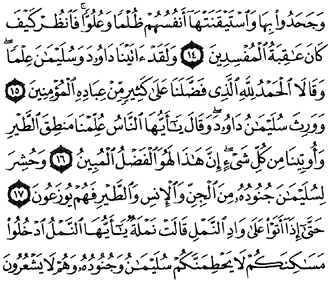 وَجَحَدُوا۟ بِهَا وَٱسْتَيْقَنَتْهَآ أَنفُسُهُمْ ظُلْمًا وَعُلُوًّا ۚ فَٱنظُرْ كَيْفَ
كَانَ عَٰقِبَةُ ٱلْمُفْسِدِينَ ١٤ وَلَقَدْ ءَاتَيْنَا دَاوُۥدَ وَسُلَيْمَٰنَ عِلْمًا ۖ
وَقَالَا ٱلْحَمْدُ لِلَّهِ ٱلَّذِى فَضَّلَنَا عَلَىٰ كَثِيرٍ مِّنْ عِبَادِهِ ٱلْمُؤْمِنِينَ ١٥
وَوَرِثَ سُلَيْمَٰنُ دَاوُۥدَ ۖ وَقَالَ يَٰٓأَيُّهَا ٱلنَّاسُ عُلِّمْنَا مَنطِقَ ٱلطَّيْرِ
وَأُوتِينَا مِن كُلِّ شَىْءٍ ۖ إِنَّ هَٰذَا لَهُوَ ٱلْفَضْلُ ٱلْمُبِينُ ١٦ وَحُشِرَ
لِسُلَيْمَٰنَ جُنُودُهُۥ مِنَ ٱلْجِنِّ وَٱلْإِنسِ وَٱلطَّيْرِ فَهُمْ يُوزَعُونَ ١٧
حَتَّىٰٓ إِذَآ أَتَوْا۟ عَلَىٰ وَادِ ٱلنَّمْلِ قَالَتْ نَمْلَةٌ يَٰٓأَيُّهَا ٱلنَّمْلُ ٱدْخُلُوا۟
مَسَٰكِنَكُمْ لَا يَحْطِمَنَّكُمْ سُلَيْمَٰنُ وَجُنُودُهُۥ وَهُمْ لَا يَشْعُرُونَ